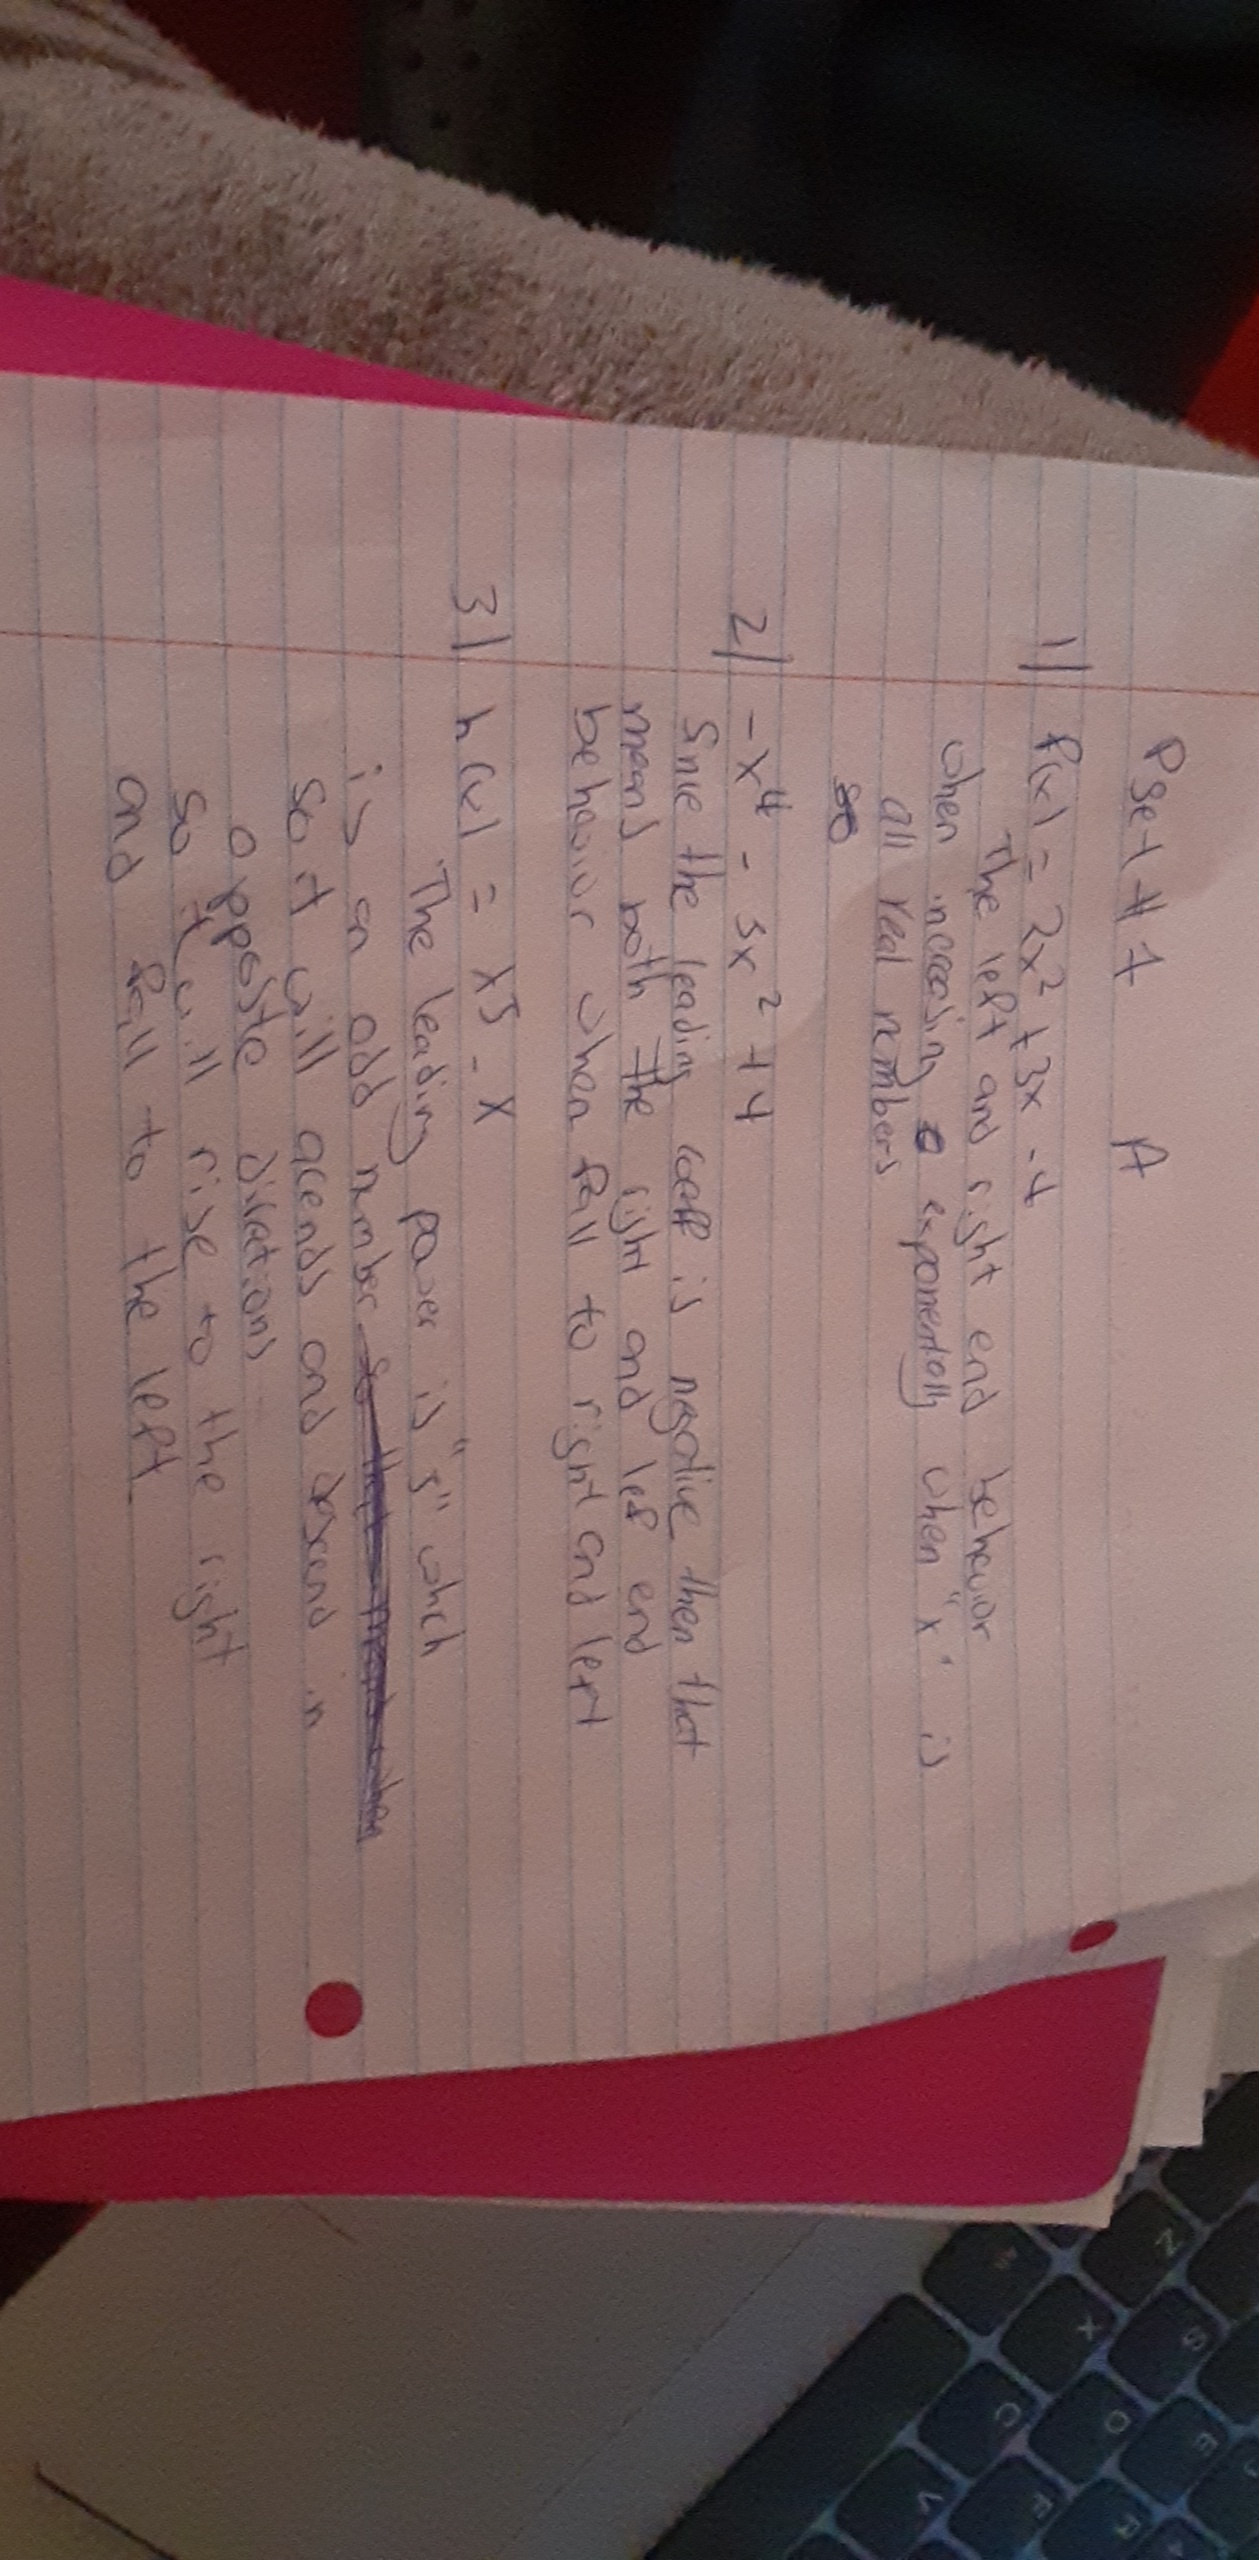 Pset # 7 A
1) f(x) = 2x² + 3x - 4
The left and right end behavior
when increasing exponentally when "x" is
all real numbers
so
2) -x⁴ - 3x² + 4
Sinve the leading coeff is negative then that
means both the right and lef end
behavior when fall to right and left
3) h(x) = x5 - x
The leading power is "5" which
is an odd number
so it will acends and descend in
opposite directions
so it will rise to the right
and fall to the left
Z X C V S D F E R